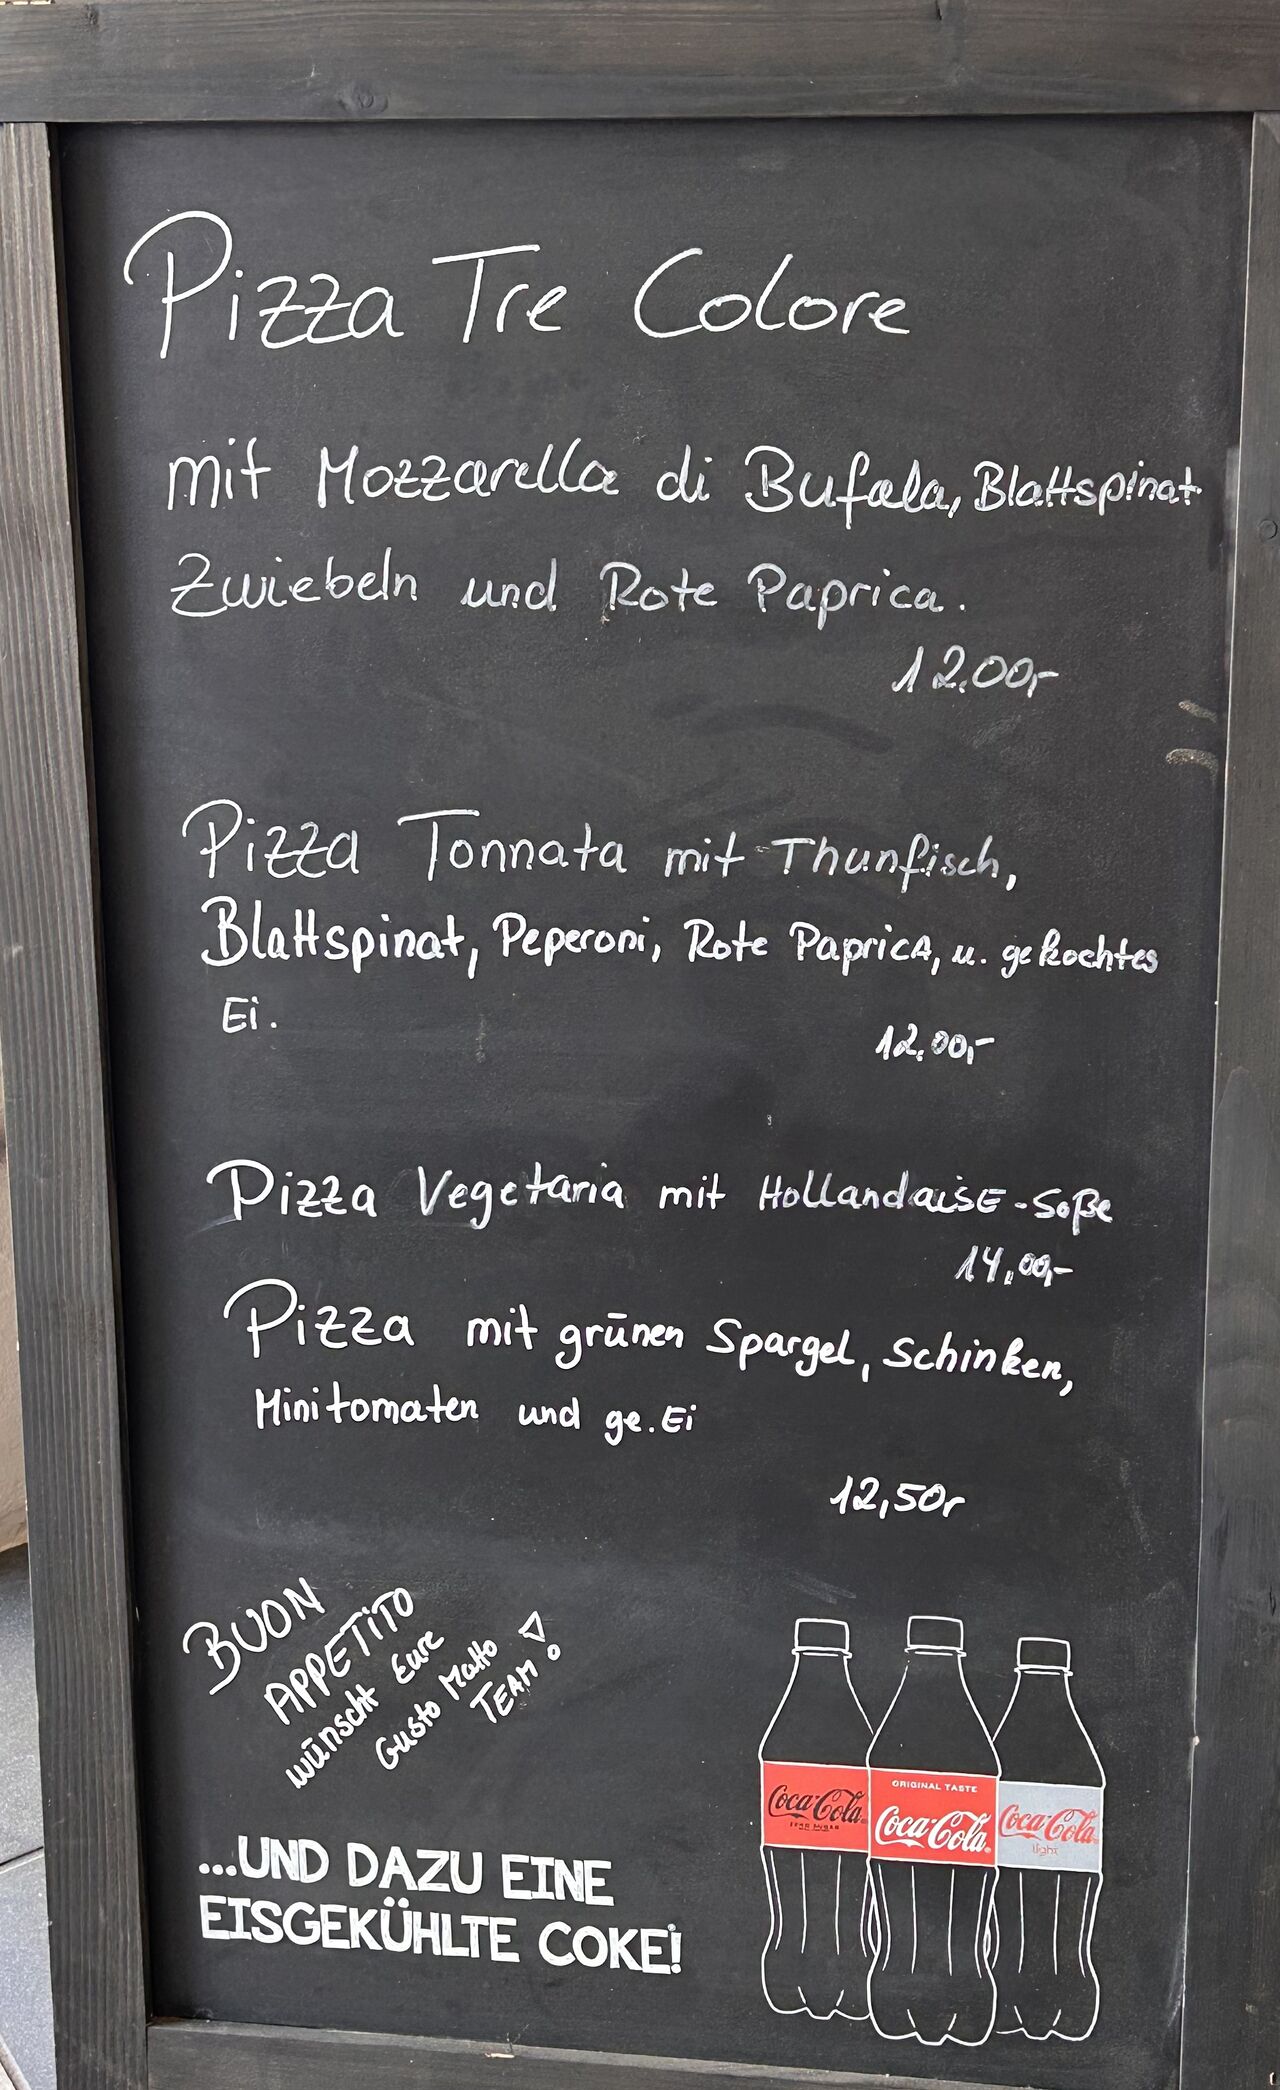 Pizza Tre Colore
mit Mozzarella di Bufala, Blattspinat
Zwiebeln und Rote Paprica.
12.00,-
Pizza Tonnata mit Thunfisch,
Blattspinat, Peperoni, Rote Paprica, u. gekochtes
Ei.
12.00,-
Pizza Vegetaria mit Hollandaise-Soße
14,00,-
Pizza mit grünen Spargel, Schinken,
Minitomaten und ge. Ei
12,50,-
BUON
APPETITO
wünscht Eure
Gusto Matto
TEAM!
...UND DAZU EINE
EISGEKÜHLTE COKE!
Coca-Cola
zero sugar
ORIGINAL TASTE
Coca-Cola
Coca-Cola
light